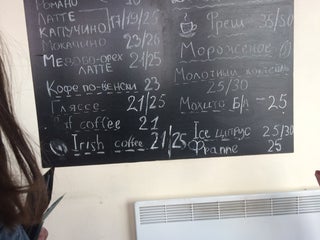 РОМАНО
ЛАТТЕ
КАПУЧИНО 17/19/25
МОКАЧИНО 23/26
МЕДОВО-ОРЕХ
ЛАТТЕ
КОФЕ ПО-ВЕНСКИ 23
ГЛЯССЕ 21/25
coffee 21
Irish coffee 21/25
Фреш 35/50
Мороженое
Молочный коктейль
25/30
Мохито Б/А - 25
Ice цитрус 25/30
25